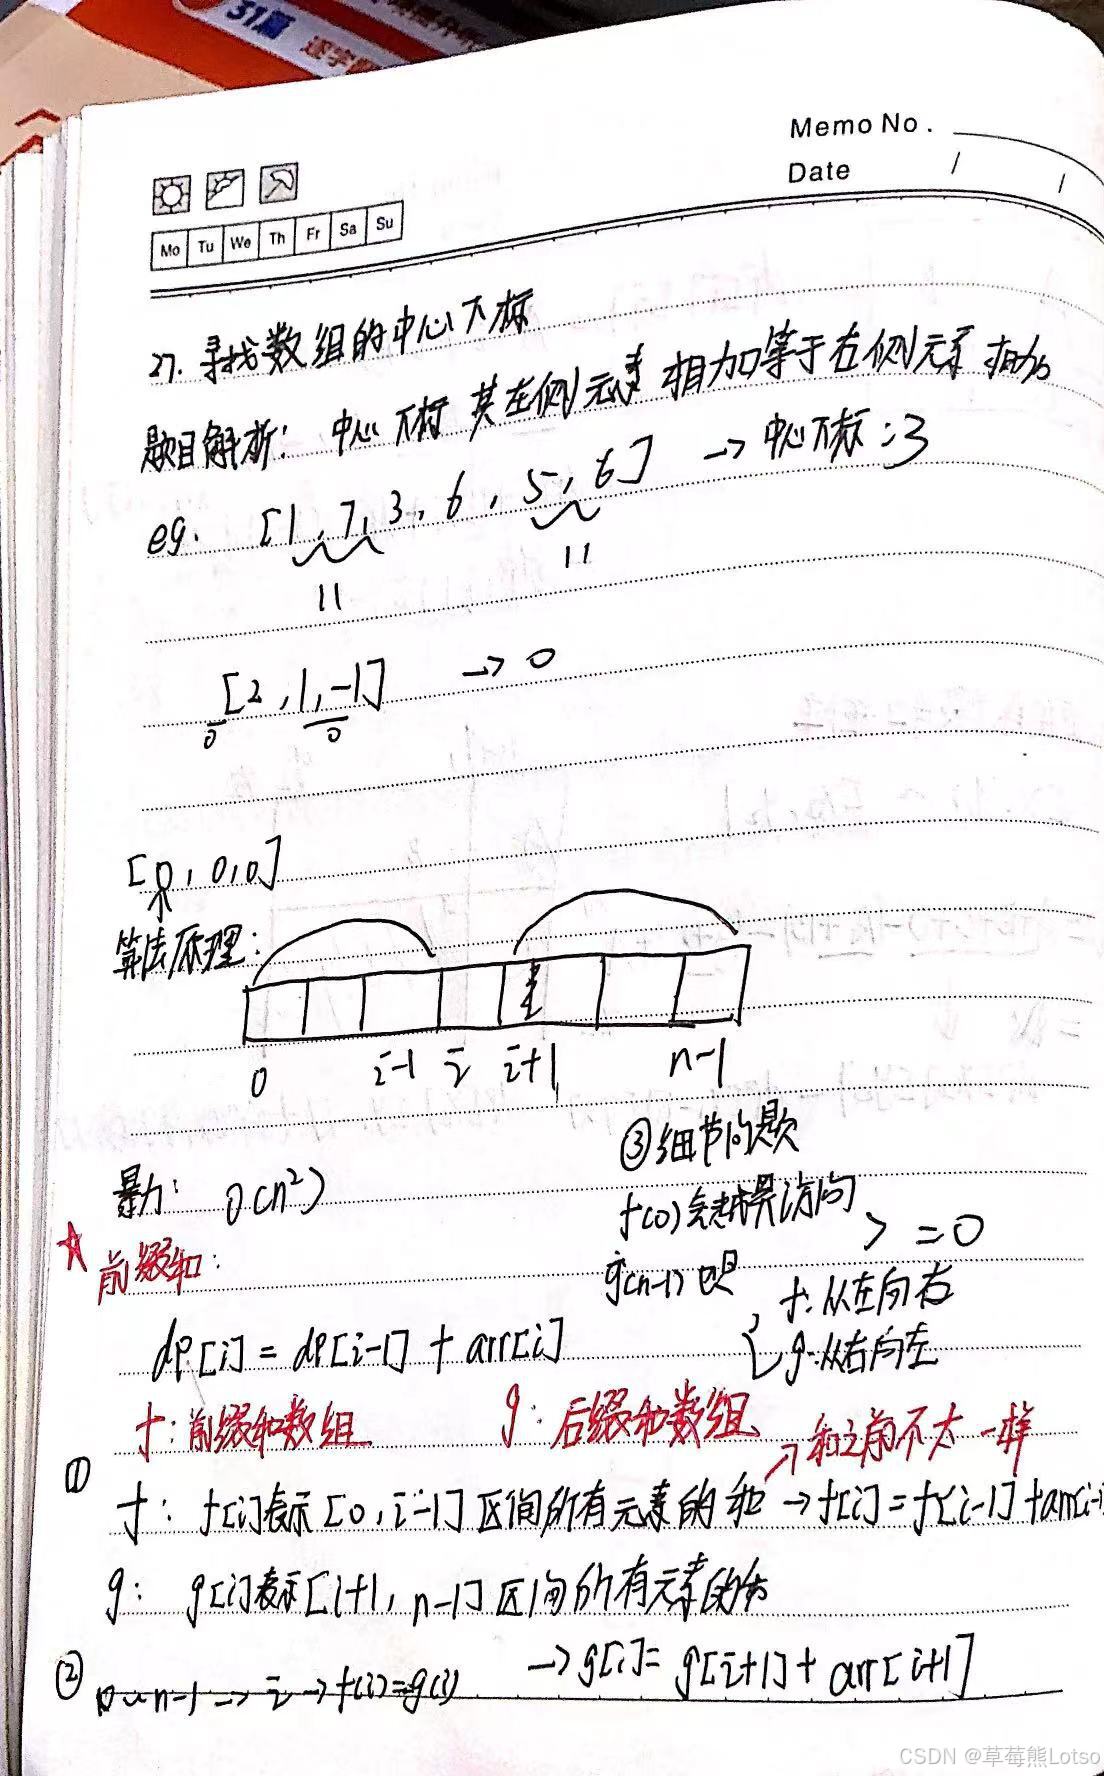 31篇 逐字
Memo No.
Date / /
Mo Tu We Th Fr Sa Su
27. 寻找数组的中心下标
题目解析: 中心下标 其左侧元素相加等于右侧元素相加
eg. [1, 7, 3, 6, 5, 6] → 中心下标:3
11 11
[2, 1, -1] → 0
0 0
[0, 0, 0]
算法原理:
0 i-1 i i+1 n-1
③细节问题
暴力: O(n²)
f(0)会越界访问
g(n-1)也是 > =0
☆前缀和:
f:从左向右
g:从右向左
dp[i] = dp[i-1] + arr[i]
f:前缀和数组 g:后缀和数组 → 和之前不太一样
① f: f[i]表示[0, i-1]区间所有元素的和 → f[i] = f[i-1] + arr[i-1
g: g[i]表示[i+1, n-1]区间所有元素的和
→ g[i] = g[i+1] + arr[i+1]
② 0~n-1 → i → f(i)=g(i)
CSDN @草莓熊Lotso